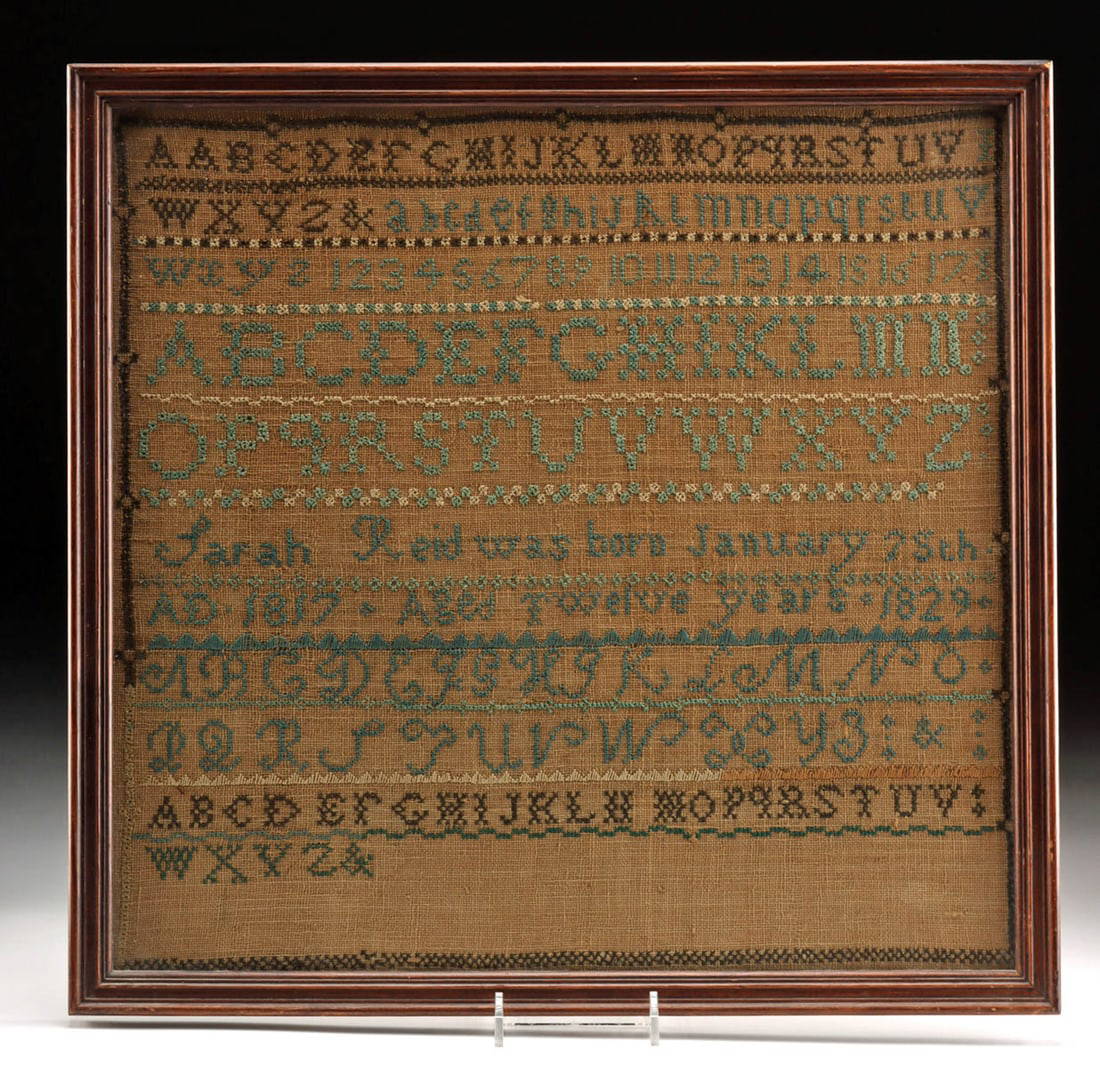 A A B C D E F G H I J K L M N O P Q R S T U V
W X Y Z & a b c d e f g h i j k l m n o p q r s t u v
w x y z 1 2 3 4 5 6 7 8 9 10 11 12 13 14 15 16 17
A B C D E F G H I K L M N
O P Q R S T U V W X Y Z
Sarah Reid was born January 25th
AD · 1817 · Aged twelve years · 1829 ·
A B C D E F G H I K L M N O
P Q R S T U V W X Y Z &
A B C D E F G H I J K L M N O P Q R S T U V
W X Y Z &